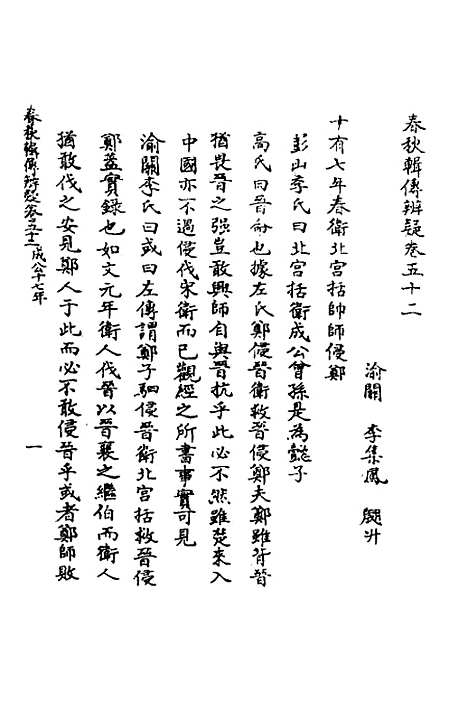 春秋輯傳辨疑卷五十二
渝關 李集鳳 翽升
十有七年春衛北宮括帥師侵鄭
彭山季氏曰北宮括衛成公曾孫是為懿子
高氏曰晉命也據左氏鄭侵晉衛救晉侵鄭夫鄭雖背晉
猶畏晉之强豈敢興師自與晉抗乎此必不然雖楚來入
中國亦不過侵伐宋衛而已觀經之所書事實可見
渝關李氏曰或曰左傳謂鄭子駟侵晉衛北宮括救晉侵
鄭蓋實錄也如文元年衛人伐晉以晉襄之繼伯而衛人
猶敢伐之安見鄭人于此而必不敢侵晉乎或者鄭師敗
春秋輯傳辨疑卷五十二 成公十七年
一